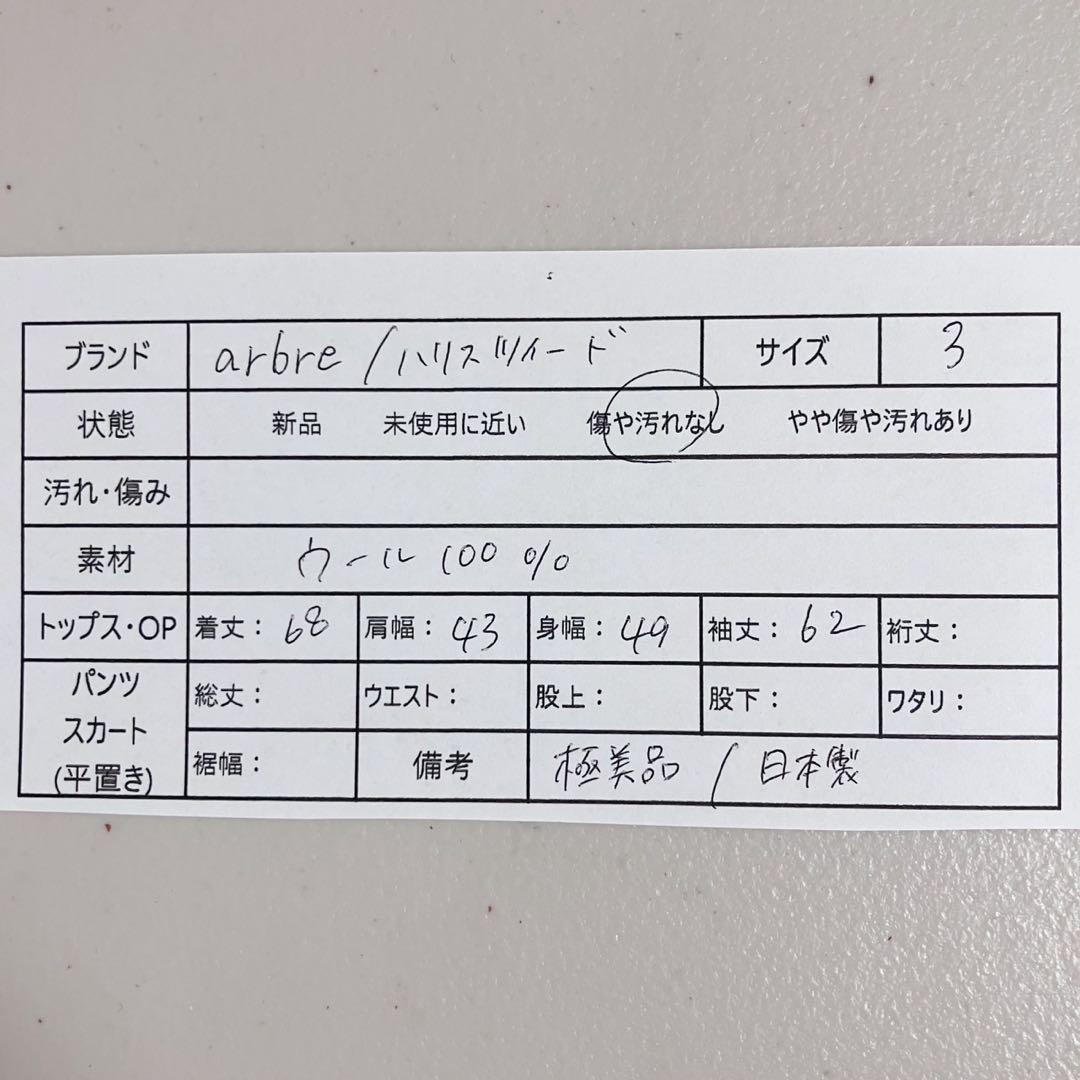 ブランド arbre / ハリスツイード サイズ 3
状態 新品 未使用に近い 傷や汚れなし やや傷や汚れあり
汚れ・傷み
素材 ウール 100 %
トップス・OP 着丈： 68 肩幅： 43 身幅： 49 袖丈： 62 裄丈：
パンツ
スカート
(平置き)
総丈： ウエスト： 股上： 股下： ワタリ：
裾幅： 備考 極美品 / 日本製